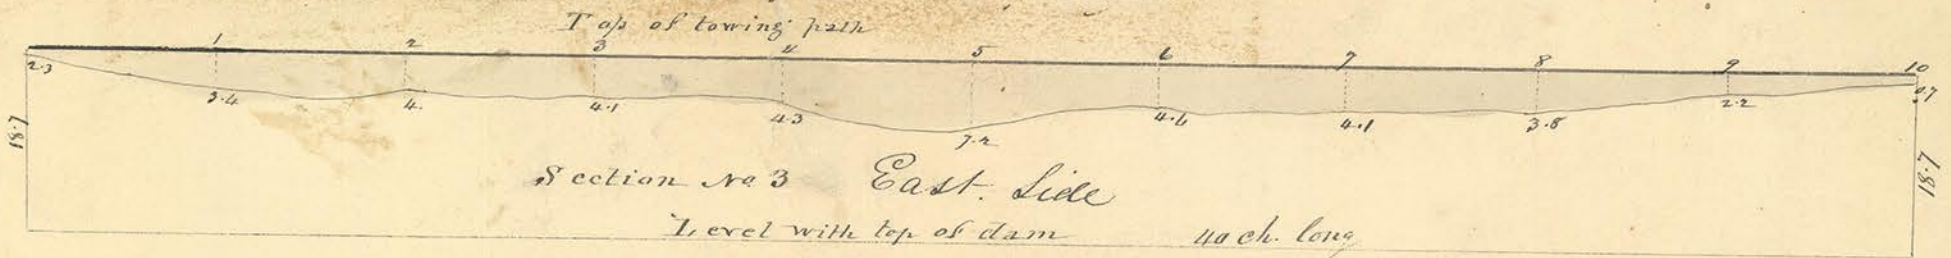 Top of towing path
1 2 3 4 5 6 7 8 9 10
2.3 3.4 4. 4.1 4.3 7.2 4.6 4.1 3.8 2.2 0.7
18.7 18.7
Section No 3 East. Side
Level with top of dam 40 ch. long